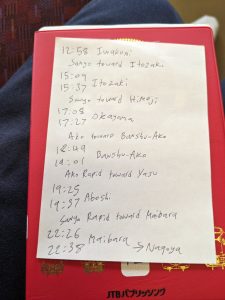 12:58 Iwakuni
Sanyo toward Itozaki
15:09
15:37 Itozaki
Sanyo toward Himeji
17:08
17:27 Okayama
Ako toward Banshu-Ako
18:49
19:01 Banshu-Ako
Ako Rapid toward Yasu
19:25
19:37 Aboshi
Sanyo Rapid toward Maibara
22:26
22:38 Maibara → Nagoya
JTBパブリッシング